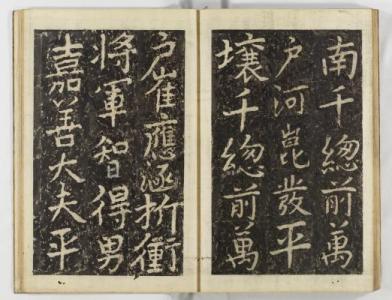 南千緫前萬
户河崑發平
壤千緫前萬
户崔應涵折衝
將軍智得男
嘉善大夫平